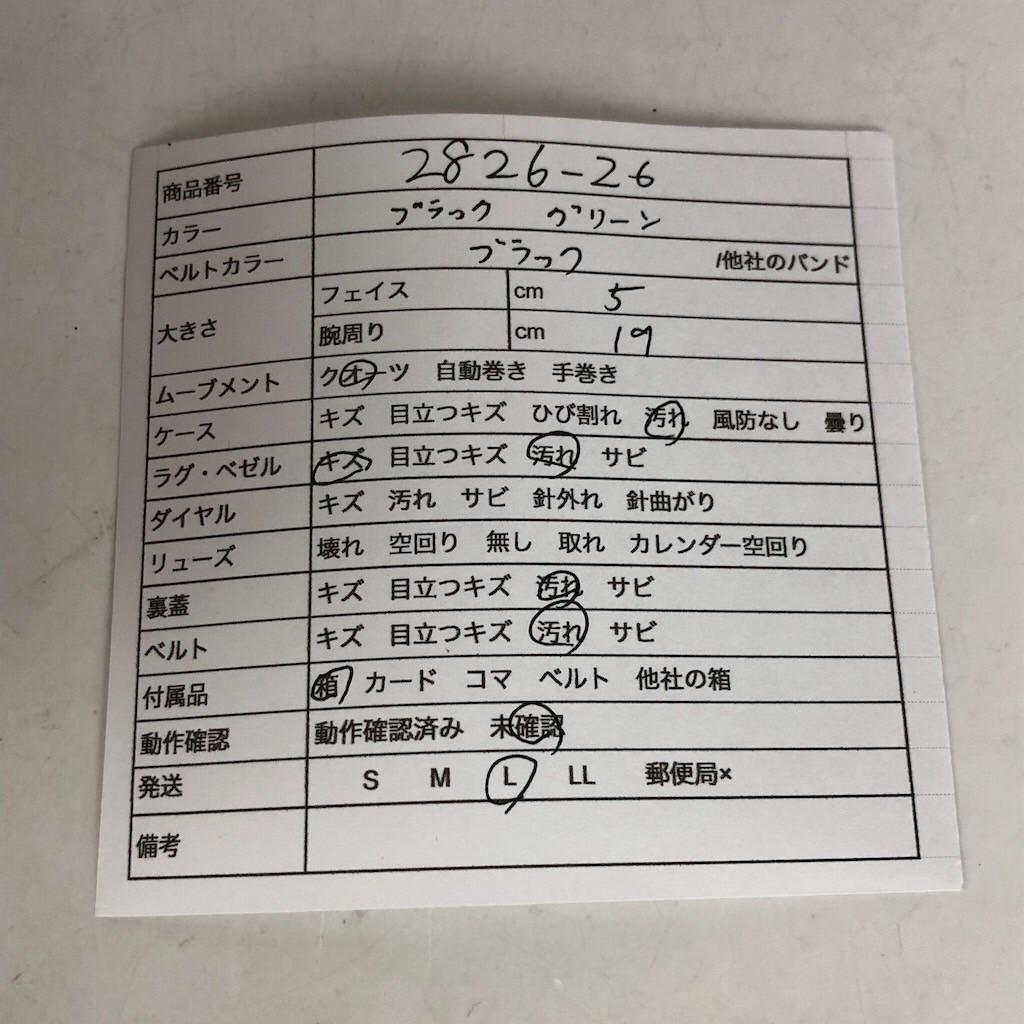 商品番号 2826-26
カラー ブラック グリーン
ベルトカラー ブラック /他社のバンド
大きさ フェイス cm 5
腕周り cm 19
ムーブメント クオーツ 自動巻き 手巻き
ケース キズ 目立つキズ ひび割れ 汚れ 風防なし 曇り
ラグ・ベゼル キズ 目立つキズ 汚れ サビ
ダイヤル キズ 汚れ サビ 針外れ 針曲がり
リューズ 壊れ 空回り 無し 取れ カレンダー空回り
裏蓋 キズ 目立つキズ 汚れ サビ
ベルト キズ 目立つキズ 汚れ サビ
付属品 箱 カード コマ ベルト 他社の箱
動作確認 動作確認済み 未確認
発送 S M L LL 郵便局×
備考